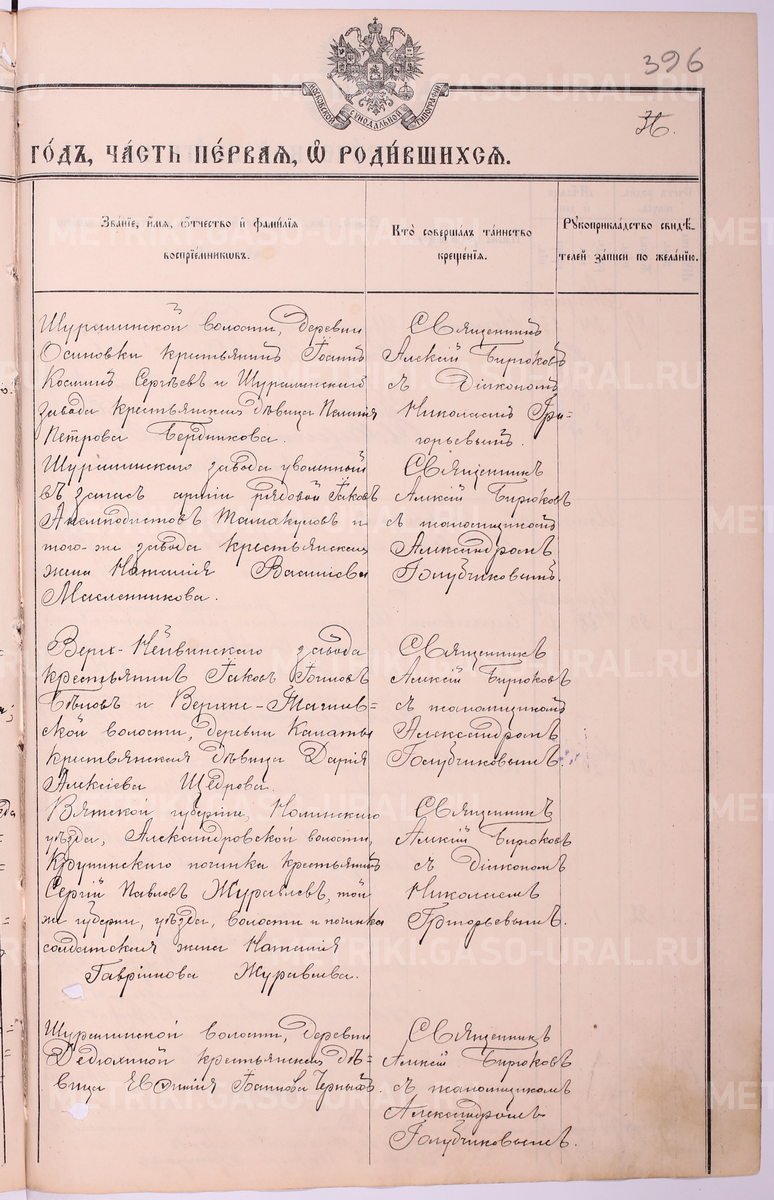 396
МОСКОВСКОЙ СѴНОДАЛЬНОЙ ТИПОГРАФІИ
36.
ГО́ДЪ, ЧА́СТЬ ПЕ́РВАѦ, Ѡ҆ РОДИ́ВШИХСѦ.
Зва́нїе, и҆́мѧ, ѻ҆́тчество и҆ фами́лїѧ
воспрїе́мниковъ.
Кто̀ соверша́лъ та́инство
креще́нїѧ.
Рꙋкоприкла́дство свидѣ́-
телей за́писи по жела́нїю.
Шуралинской волости, деревни
Осиновки крестьянинъ Іоаннъ
Косминъ Сергѣевъ и Шуралинскаго
завода крестьянская дѣвица Пелагія
Петрова Бердникова.
Священникъ
Алексій Бирюковъ
съ Діакономъ
Николаемъ Гри-
горьевымъ.
Шуралинскаго завода уволенный
въ запасъ арміи рядовой Іаковъ
Анемподистовъ Тамакуловъ и
того-же завода крестьянская
жена Наталія Василіева
Масленникова.
Священникъ
Алексій Бирюковъ
съ псаломщикомъ
Александромъ
Голубчиковымъ.
Верхъ-Нейвинскаго завода
крестьянинъ Іаковъ Іоанновъ
Бѣловъ и Верхне-Тагиль-
ской волости, деревни Каваты
крестьянская дѣвица Дарія
Алексіева Щедрова.
Священникъ
Алексій Бирюковъ
съ псаломщикомъ
Александромъ
Голубчиковымъ.
Вятской губерніи, Нолинскаго
уѣзда, Александровской волости,
Крупинскаго починка крестьянинъ
Сергій Павловъ Журавлевъ, той
же губерніи, уѣзда, волости и починка
солдатская жена Наталія
Гавріилова Журавлева.
Священникъ
Алексій Бирюковъ
съ Діакономъ
Николаемъ
Григорьевымъ.
Шуралинской волости, деревни
Дедюхиной крестьянская дѣ-
вица Евфимія Іоаннова Черныхъ.
Священникъ
Алексій Бирюковъ
съ псаломщикомъ
Александромъ
Голубчиковымъ.
METRIKI.GASO-URAL.RU